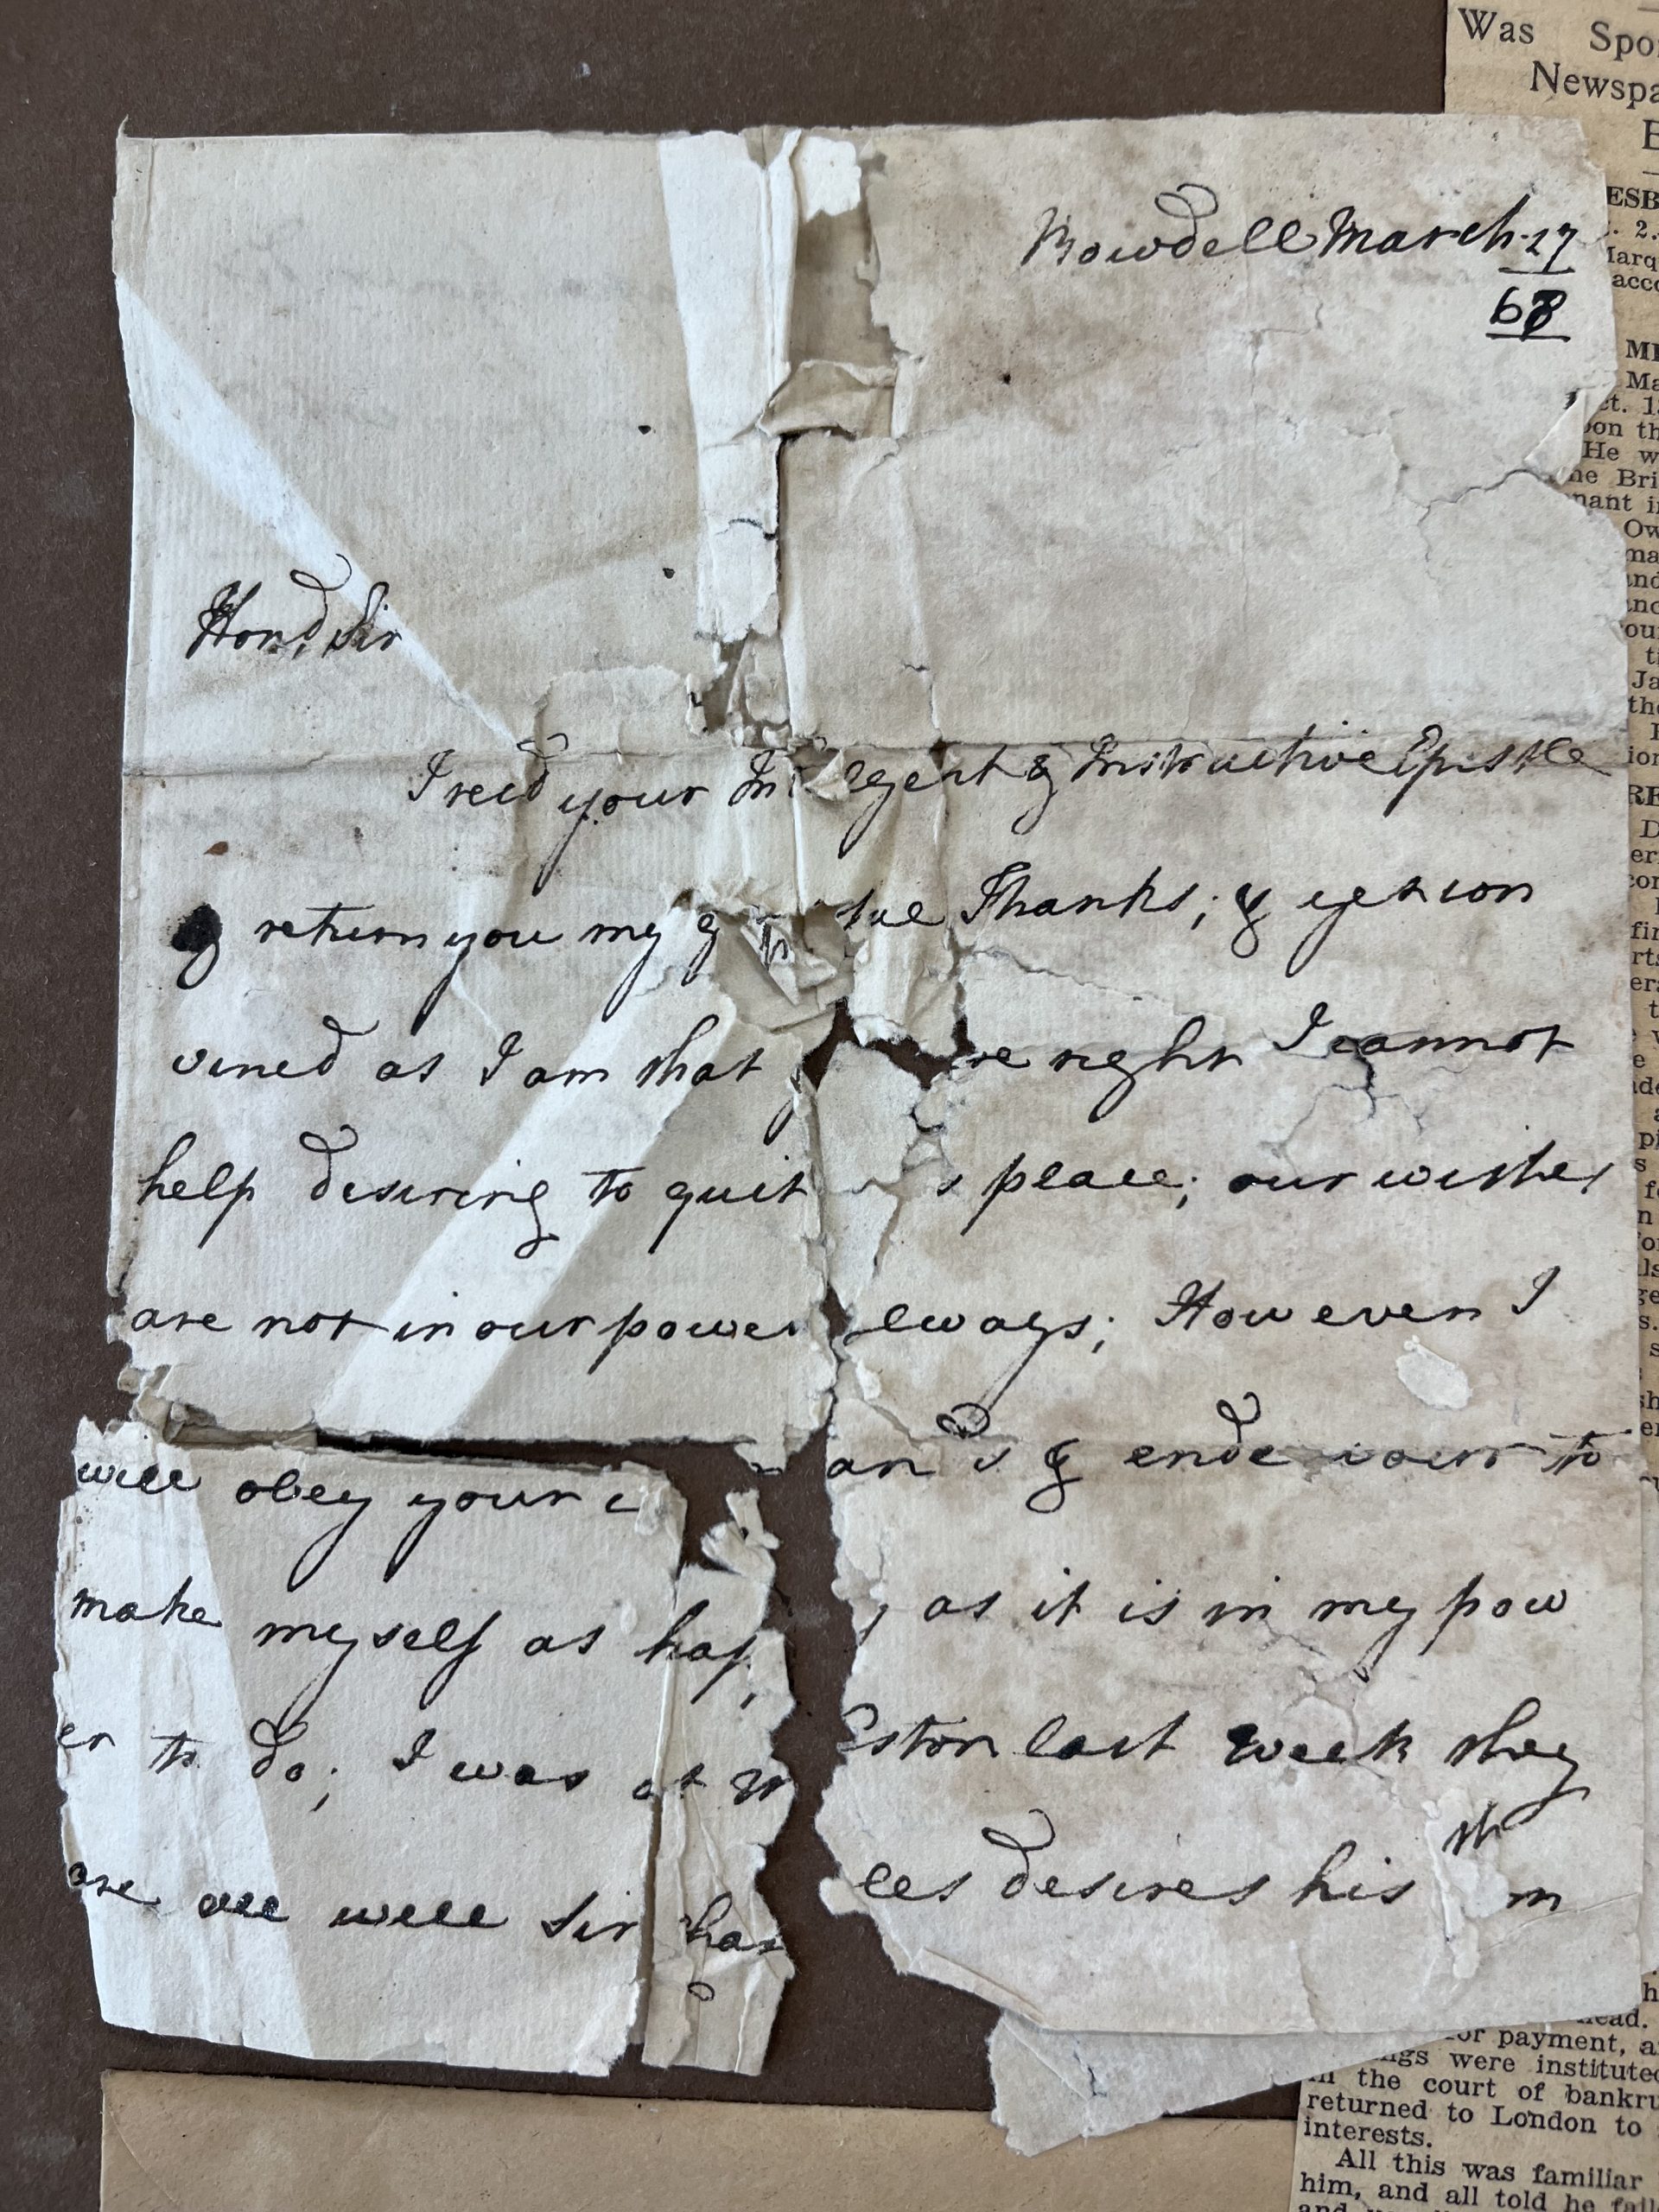 Bowdell March 27
68
Hond, Sir
I recd your In lgent & Instructive Epistle
& return you my g full Thanks; & yet con
vined as I am that y re right I cannot
help desiring to quit s place; our wishes
are not in our power lways; However I
will obey your c an s & ende vour to
make myself as hap y as it is in my pow
er to do; I was at W Eston last week they
are all well Sir har les desires his m
Was Spo
Newspa
E
ESB
. 2.
Marq
acco
ME
Ma
ct. 1
on th
He w
he Bri
nant i
Ow
ma
and
anc
ou
t
Ja
the
ion
RE
D
er
con
fin
rts
era
ead.
or payment, a
ngs were institute
in the court of bankru
returned to London to
interests.
All this was familiar
him, and all told he fail